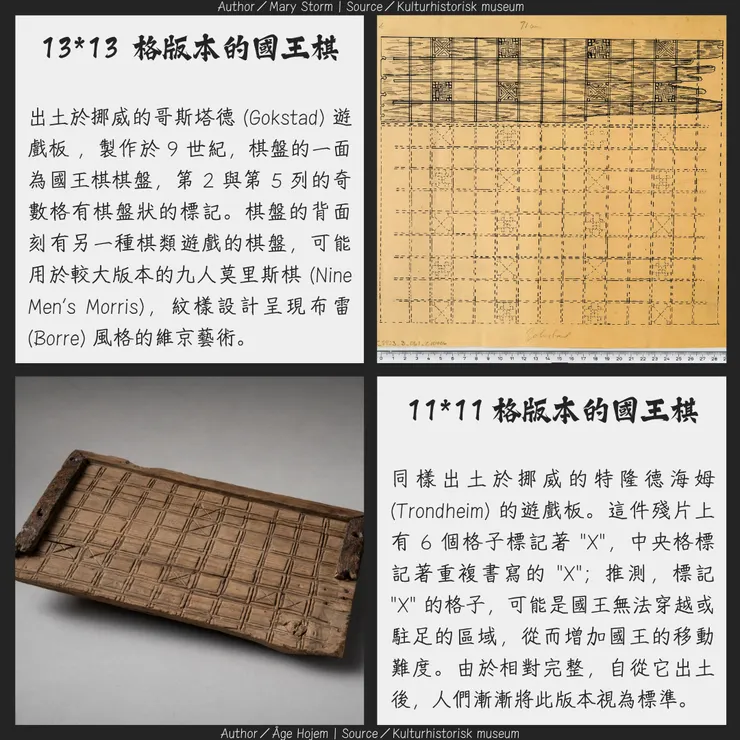 Author／Mary Storm | Source／Kulturhistorisk museum
13*13 格版本的國王棋
出土於挪威的哥斯塔德 (Gokstad) 遊
戲板 ，製作於 9 世紀，棋盤的一面
為國王棋棋盤，第 2 與第 5 列的奇
數格有棋盤狀的標記。棋盤的背面
刻有另一種棋類遊戲的棋盤，可能
用於較大版本的九人莫里斯棋 (Nine
Men's Morris)，紋樣設計呈現布雷
(Borre) 風格的維京藝術。
Gokstad
0 1 2 3 4 5 6 7 8 9 10 11 12 13 14 15 16 17 18 19 20 21 22 23 24 25 26 27 28
11*11 格版本的國王棋
同樣出土於挪威的特隆德海姆
(Trondheim) 的遊戲板。這件殘片上
有 6 個格子標記著 "X"，中央格標
記著重複書寫的 "X"；推測，標記
"X" 的格子，可能是國王無法穿越或
駐足的區域，從而增加國王的移動
難度。由於相對完整，自從它出土
後，人們漸漸將此版本視為標準。
Author／Åge Hojem | Source／Kulturhistorisk museum